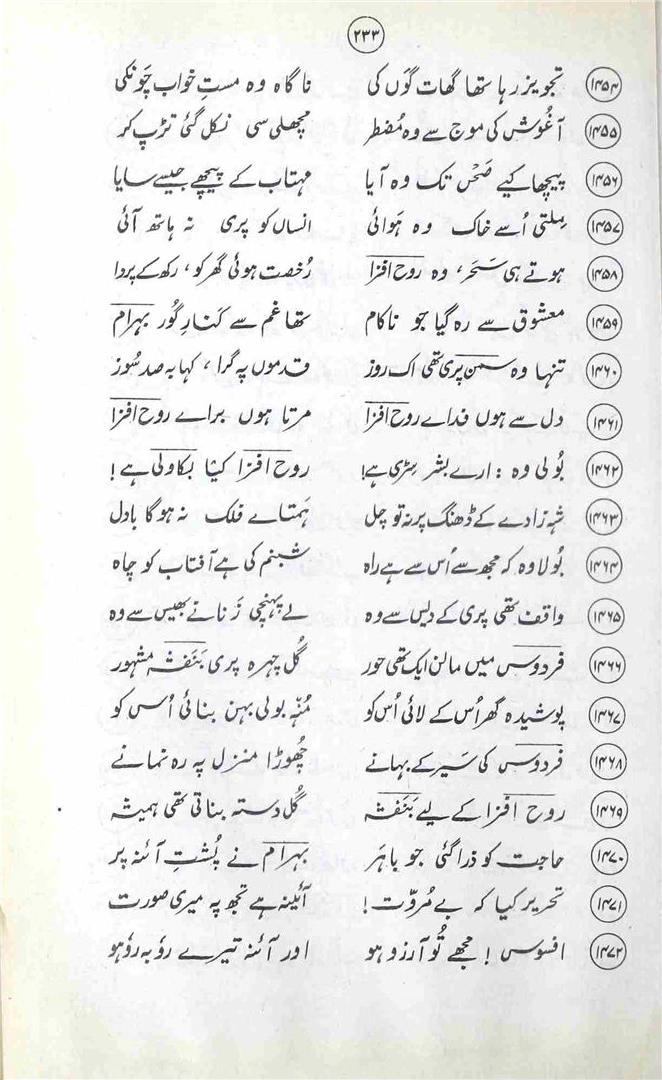 ۲۳۳
۱۴۵۴ تجویز رہا تھا گھات گَوں کی ناگاہ وہ مستِ خواب چَونکی
۱۴۵۵ آغُوش کی موج سے وہ مُضطر مچھلی سی نکل گئی تڑپ کر
۱۴۵۶ پیچھا کیے صَحْن تک وہ آیا مہتاب کے پیچھے جیسے سایا
۱۴۵۷ مِلتی اُسے خاک وہ ہَوائی انساں کو پری نہ ہاتھ آئی
۱۴۵۸ ہوتے ہی سَحَر، وہ روح افزا رُخصت ہوئی گھر کو، رکھ کے پردا
۱۴۵۹ معشوق سے رہ گیا جو ناکام تھا غم سے کنارِ گُور بہرام
۱۴۶۰ تنہا وہ سمن پری تھی اک روز قدموں پہ گرا، کہا بہ صد سُوز
۱۴۶۱ دل سے ہوں فداے روح افزا مرتا ہوں براے روح افزا
۱۴۶۲ بُولی وہ: ارے بشر سِڑی ہے! روح افزا کیا بکاولی ہے!
۱۴۶۳ شہ زادے کے ڈھنگ پر نہ تو چل ہَمتاے فلک نہ ہوگا بادل
۱۴۶۴ بُولا وہ کہ مجھ سے اُس سے ہے راہ شبنم کی ہے آفتاب کو چاہ
۱۴۶۵ واقف تھی پری کے دیس سے وہ لے پہنچی زَنانے بھیس سے وہ
۱۴۶۶ فردوس میں مالن ایک تھی حور گُل چہرہ پری بَنَفشہ مشہور
۱۴۶۷ پوشیدہ گھر اُس کے لائی اُس کو مُنہ بولی بہن بنائی اُس کو
۱۴۶۸ فردوس کی سَیر کے بہانے چھُوڑا منزل پہ رہ نمانے
۱۴۶۹ روح افزا کے لیے بَنَفشہ گُل دستہ بناتی تھی ہمیشہ
۱۴۷۰ حاجت کو ذرا گئی جو باہَر بہرام نے پُشتِ آئنہ پر
۱۴۷۱ تحریر کیا کہ بے مُروّت! آئینہ ہے تجھ پہ میری صورت
۱۴۷۲ افسوس! مجھے تُو آرزو ہو اور آئنہ تیرے رؤبہ رؤ ہو